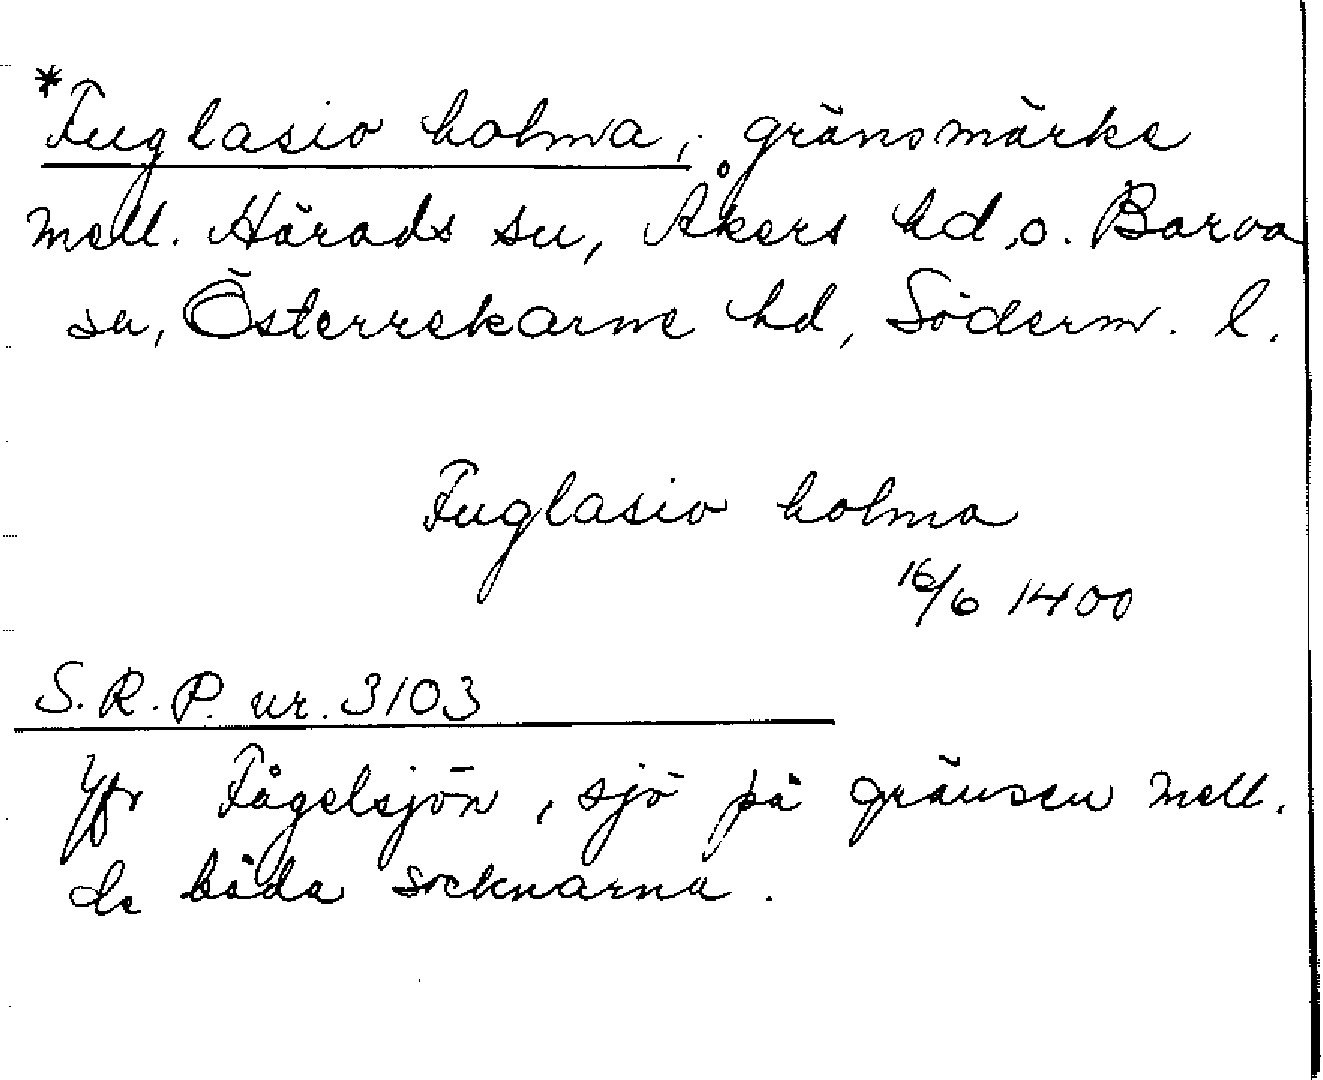 *Fuglasio holma, gränsmärke
mell. Härads sn, Åkers hd, o. Barva
sn, Österrekarne hd, Söderm. l.
Fuglasio holma
16/6 1400
S.R.P. nr. 3103
Jfr Fågelsjön, sjö på gränsen mell.
de båda socknarna.